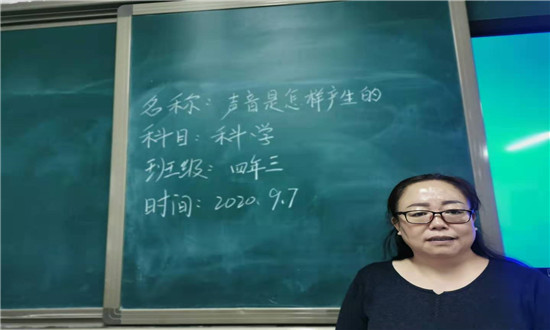 名称：声音是怎样产生的
科目：科学
班级：四年三
时间：2020.9.7